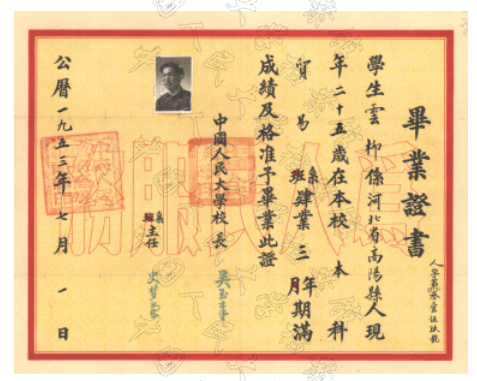 畢業證書
學生雲柳係河北省高陽縣人現
年二十五歲在本校本科
貿易系班肄業三年月期滿
成績及格准予畢業此證
中國人民大學校長
吳玉章
系班主任
公曆一九五三年七月一日
為人民服務